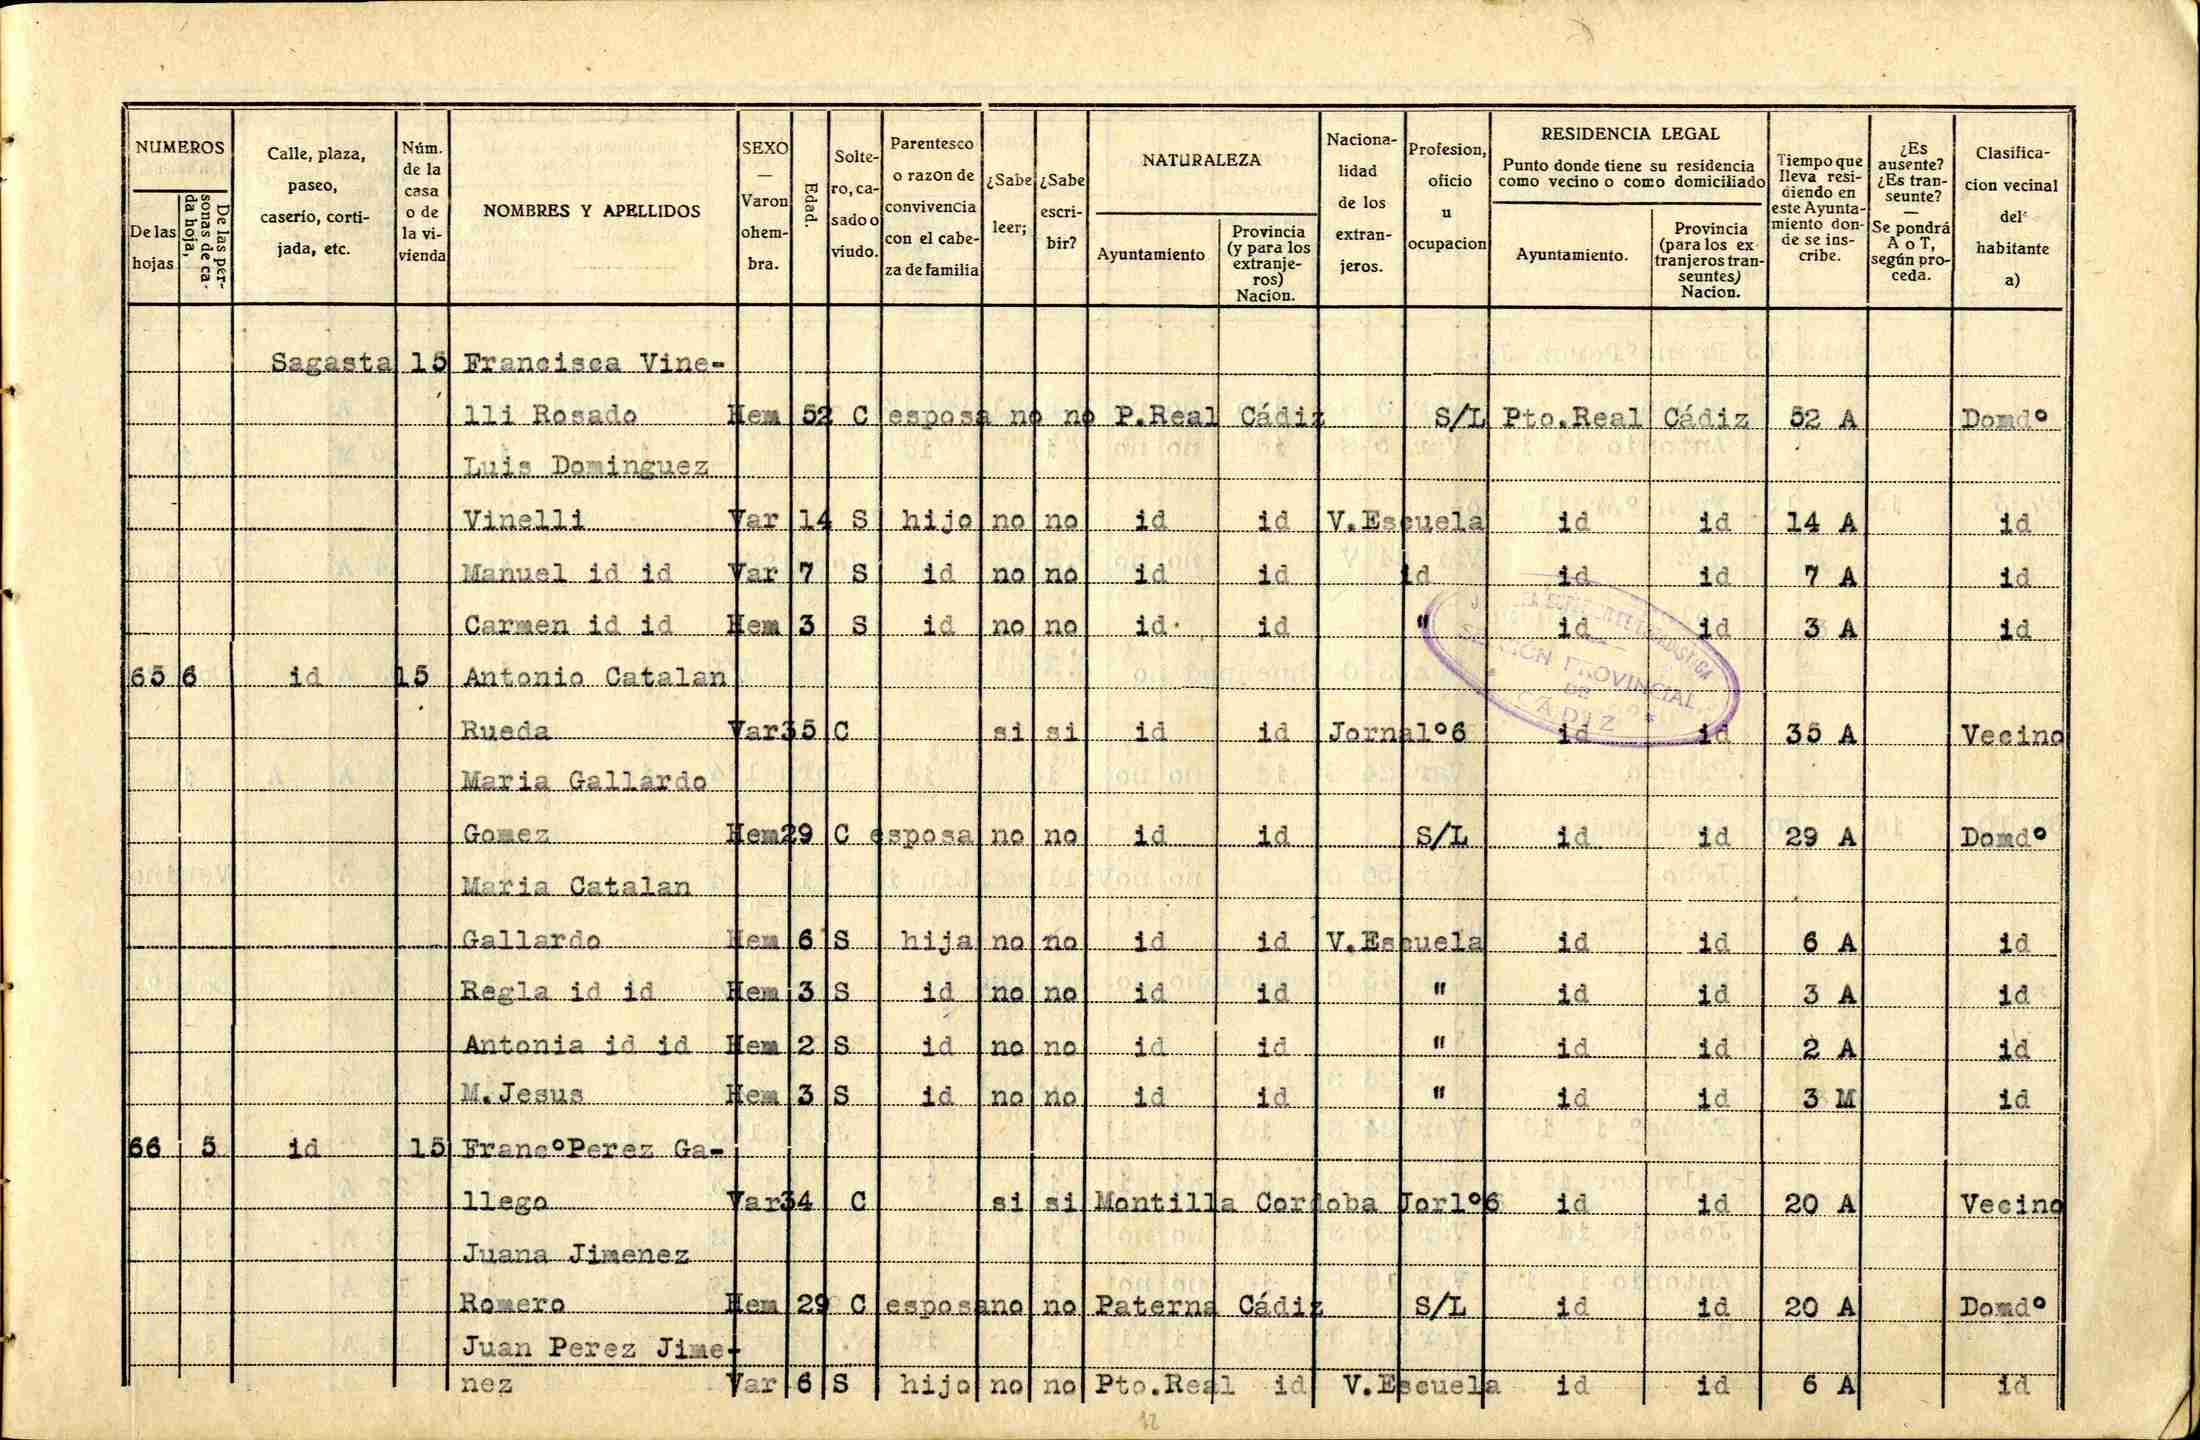 NUMEROS
De las hojas
De las personas de cada hoja,
Calle, plaza, paseo, caserio, cortijada, etc.
Núm. de la casa o de la vivienda
NOMBRES Y APELLIDOS
SEXO — Varon ohembra.
Edad.
Soltero, casado o viudo.
Parentesco o razon de convivencia con el cabeza de familia
¿Sabe leer;
¿Sabe escribir?
NATURALEZA
Ayuntamiento
Provincia (y para los extranjeros) Nacion.
Nacionalidad de los extranjeros.
Profesion, oficio u ocupacion
RESIDENCIA LEGAL
Punto donde tiene su residencia como vecino o como domiciliado
Ayuntamiento.
Provincia (para los extranjeros transeuntes) Nacion.
Tiempo que lleva residiendo en este Ayuntamiento donde se inscribe.
¿Es ausente? ¿Es transeunte? — Se pondrá A o T, según proceda.
Clasificacion vecinal del habitante a)
Sagasta 15 Francisca Vine-
lli Rosado Hem 52 C esposa no no P.Real Cádiz S/L Pto.Real Cádiz 52 A Domdº
Luis Dominguez
Vinelli Var 14 S hijo no no id id V.Escuela id id 14 A id
Manuel id id Var 7 S id no no id id id id id 7 A id
Carmen id id Hem 3 S id no no id id " id id 3 A id
65 6 id 15 Antonio Catalan
Rueda Var 35 C si si id id Jornalº6 id id 35 A Vecino
Maria Gallardo
Gomez Hem 29 C esposa no no id id S/L id id 29 A Domdº
Maria Catalan
Gallardo Hem 6 S hija no no id id V.Escuela id id 6 A id
Regla id id Hem 3 S id no no id id " id id 3 A id
Antonia id id Hem 2 S id no no id id " id id 2 A id
M.Jesus Hem 3 S id no no id id " id id 3 M id
66 5 id 15 FrancºPerez Ga-
llego Var 34 C si si Montilla Cordoba Jorlº6 id id 20 A Vecino
Juana Jimenez
Romero Hem 29 C esposa no no Paterna Cádiz S/L id id 20 A Domdº
Juan Perez Jime-
nez Var 6 S hijo no no Pto.Real id V.Escuela id id 6 A id
SECCION PROVINCIAL
DE
CADIZ
12